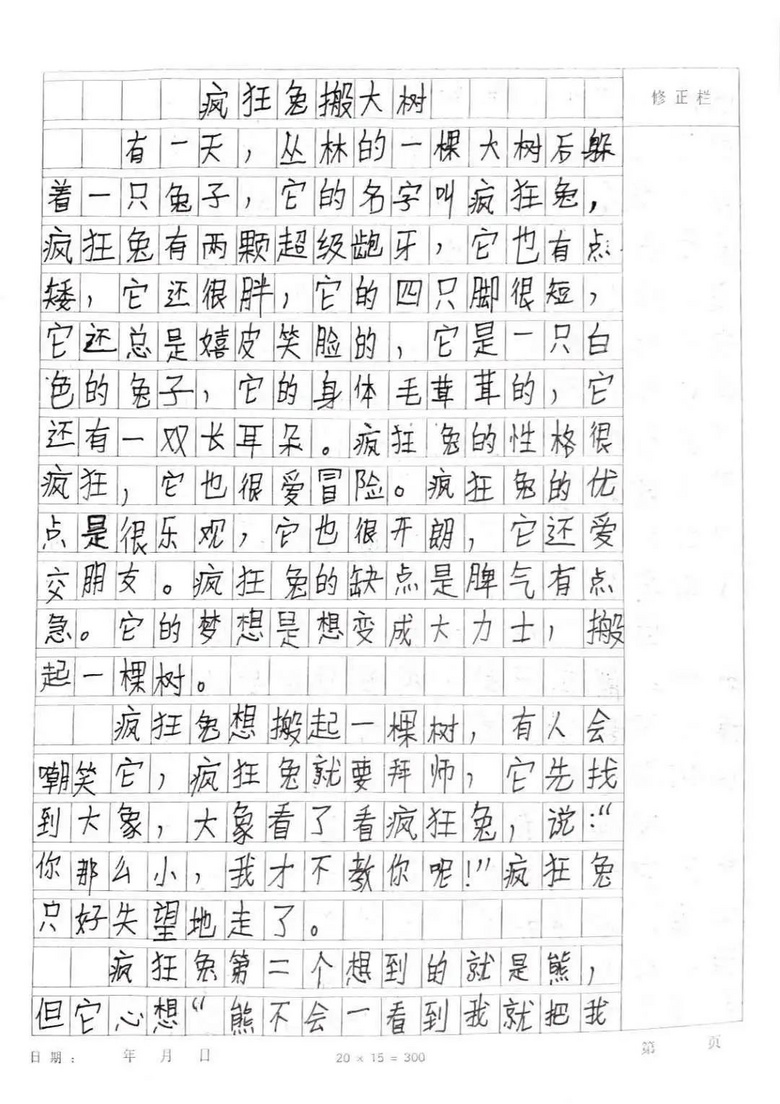 疯狂兔搬大树
修正栏
有一天，丛林的一棵大树后躲
着一只兔子，它的名字叫疯狂兔，
疯狂兔有两颗超级龅牙，它也有点
矮，它还很胖，它的四只脚很短，
它还总是嬉皮笑脸的，它是一只白
色的兔子，它的身体毛茸茸的，它
还有一双长耳朵。疯狂兔的性格很
疯狂，它也很爱冒险。疯狂兔的优
点是很乐观，它也很开朗，它还爱
交朋友。疯狂兔的缺点是脾气有点
急。它的梦想是想变成大力士，搬
起一棵树。
疯狂兔想搬起一棵树，有人会
嘲笑它，疯狂兔就要拜师，它先找
到大象，大象看了看疯狂兔，说：“
你那么小，我才不教你呢！”疯狂兔
只好失望地走了。
疯狂兔第二个想到的就是熊，
但它心想“熊不会一看到我就把我
日期： 年 月 日 20 × 15 = 300 第 页